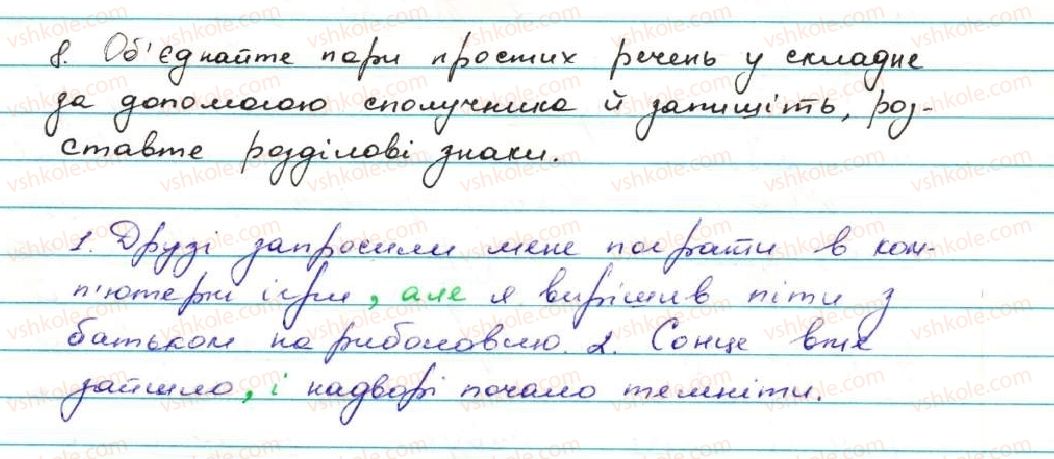 8. Об'єднайте пари простих речень у складне
за допомогою сполучника й запишіть, роз-
ставте розділові знаки.
1. Друзі запросили мене пограти в ком-
п'ютерні ігри, але я вирішив піти з
батьком на риболовлю. 2. Сонце вже
зайшло, і надворі почало темніти.